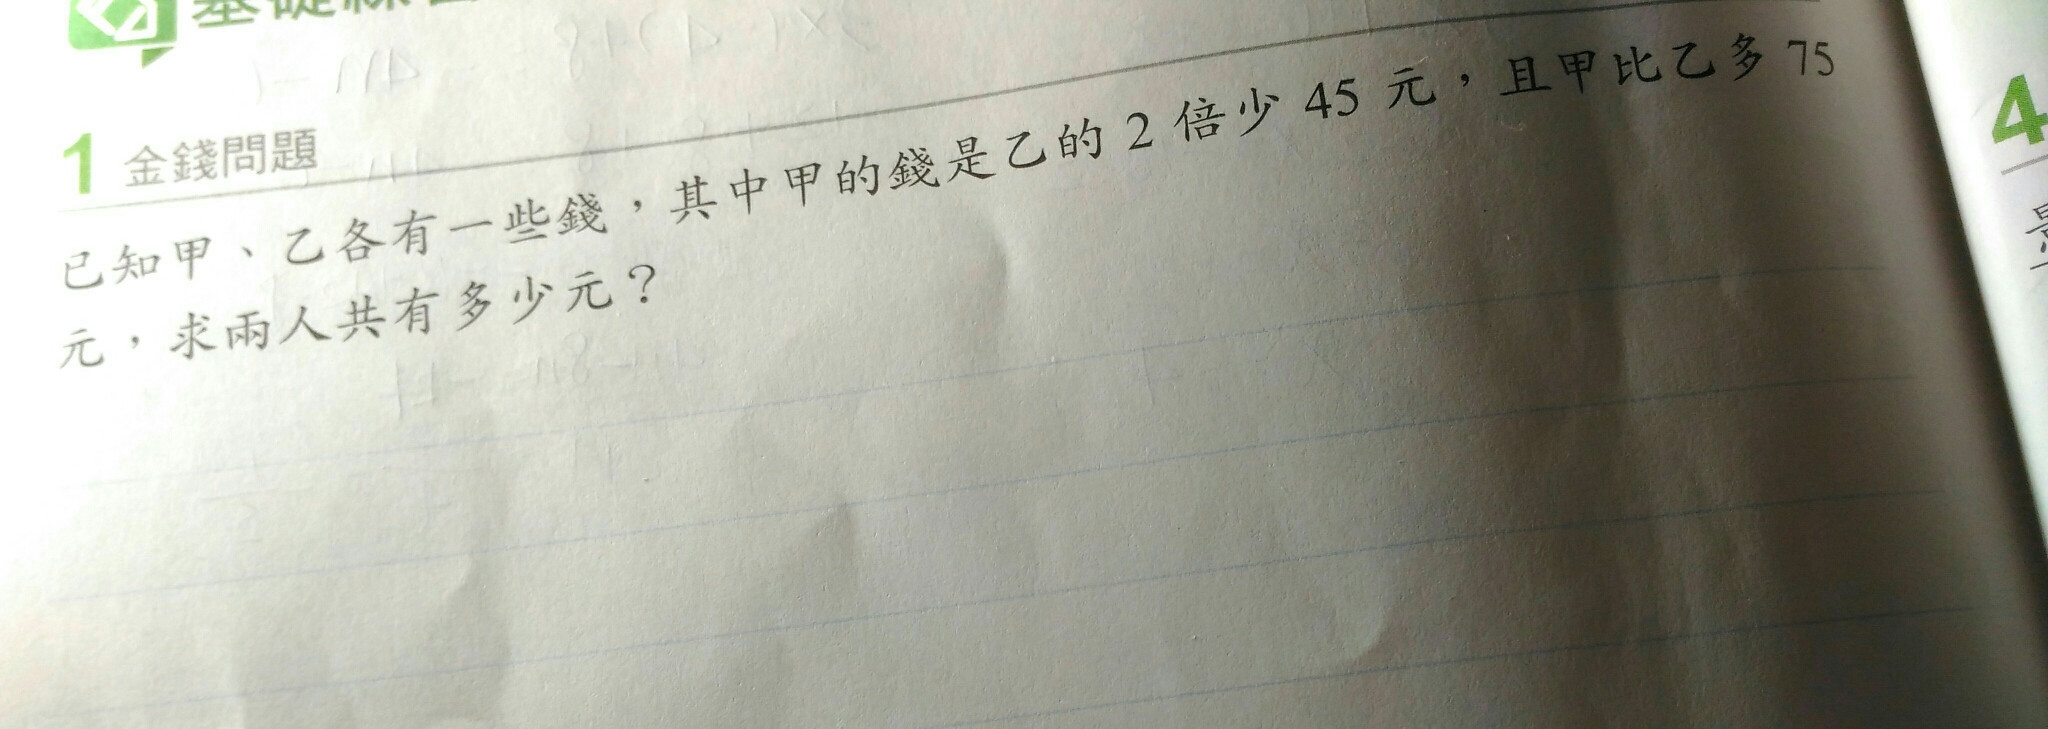 基礎練習
1 金錢問題
已知甲、乙各有一些錢，其中甲的錢是乙的 2 倍少 45 元，且甲比乙多 75
元，求兩人共有多少元？
4